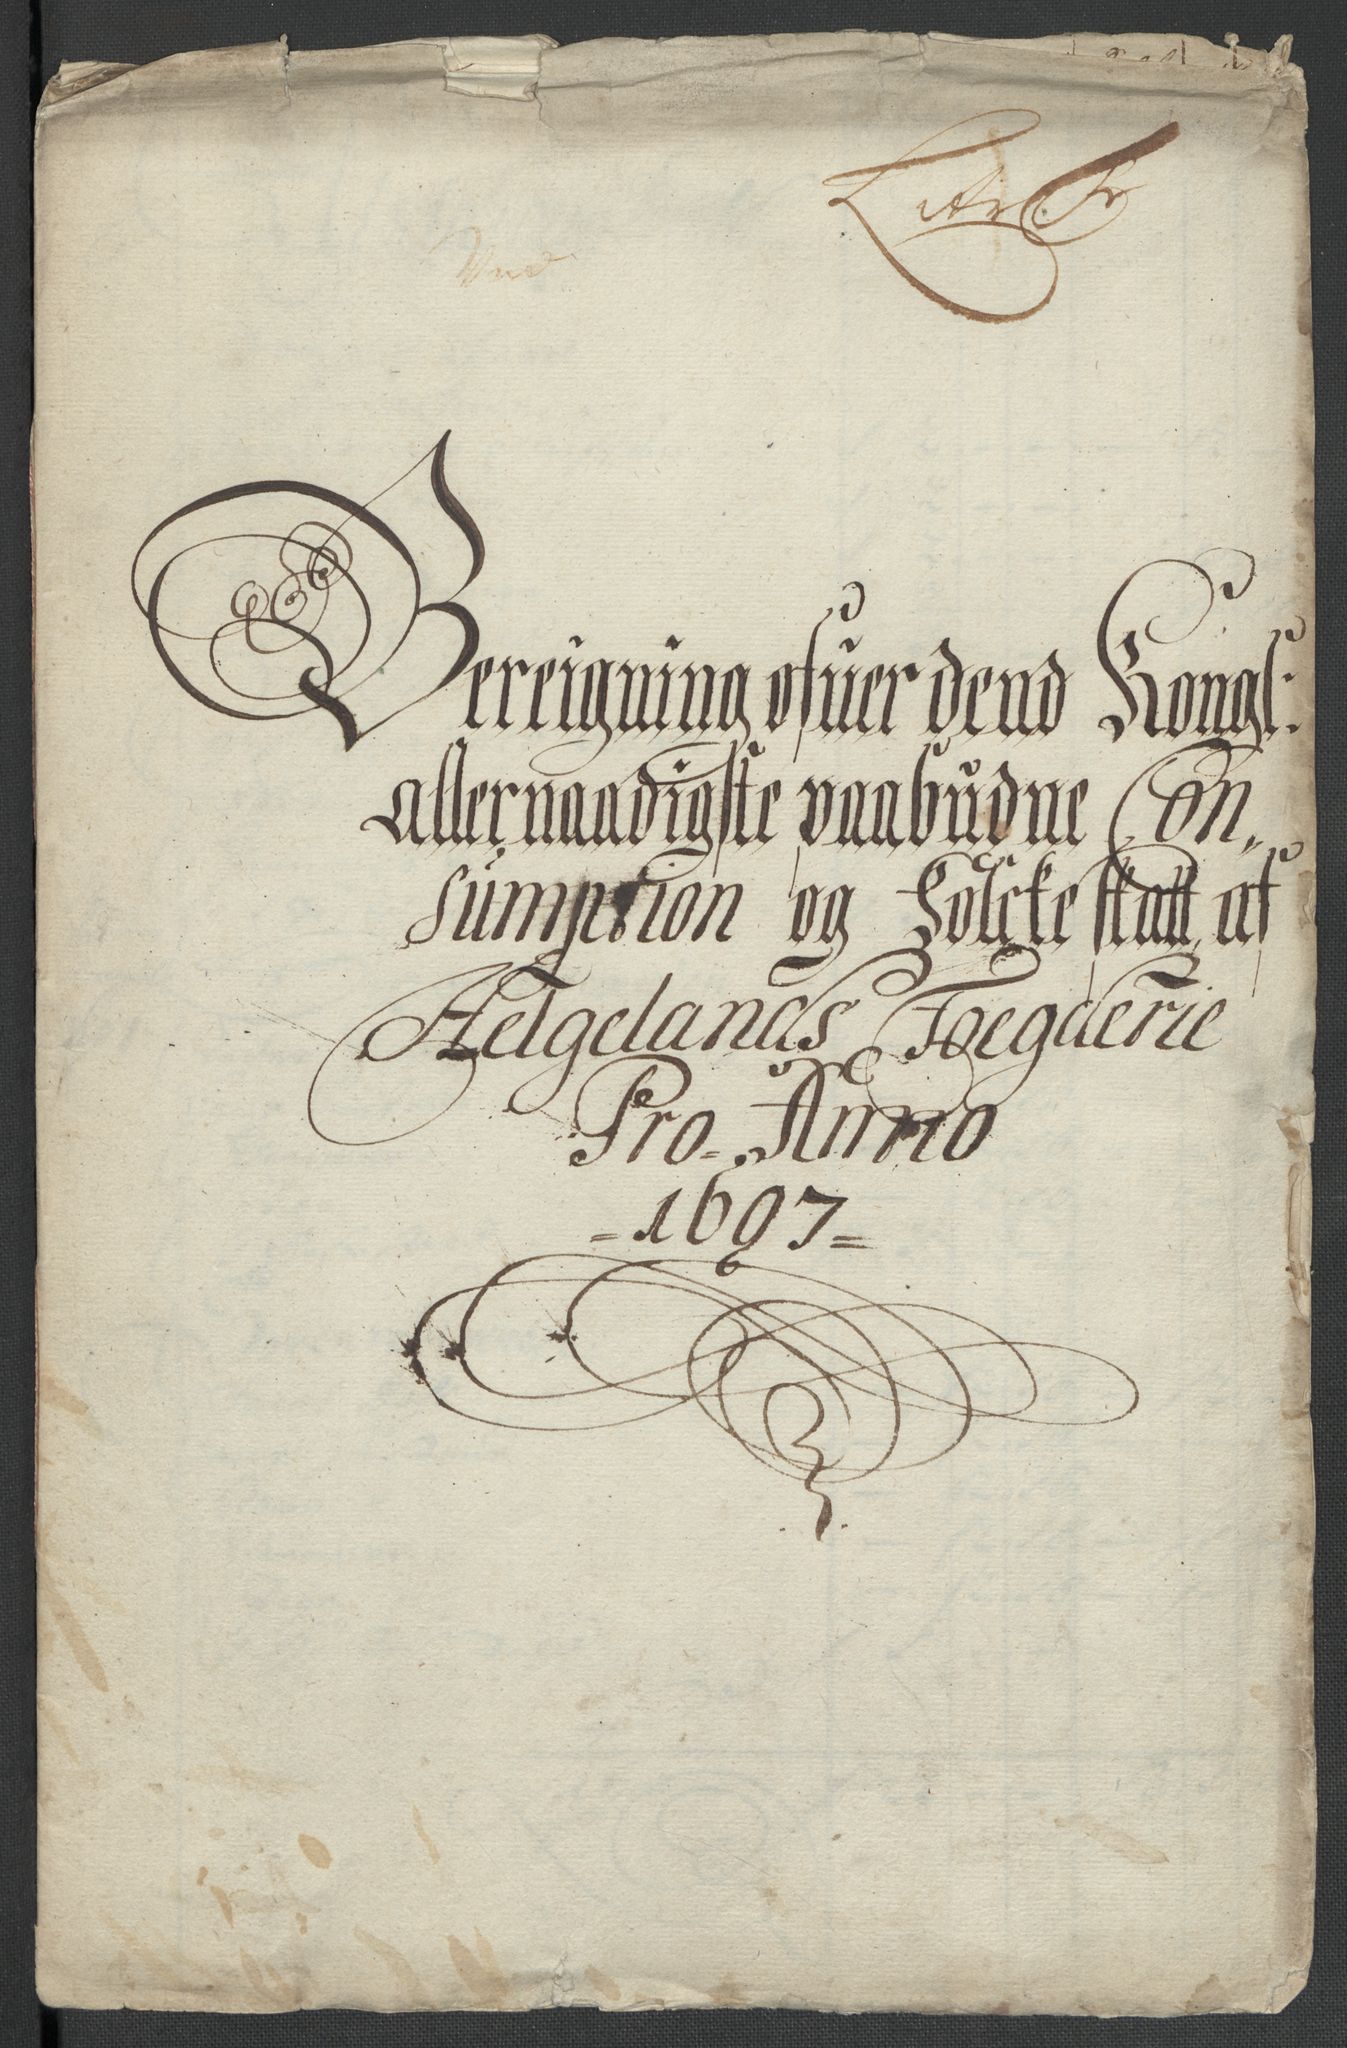 Bereigning ofuer dend Kongl:
allernaadigste paabudne Con„
sumption og Folcke skatt af
Helgelands Foegderie
Pro. Anno
=1697=